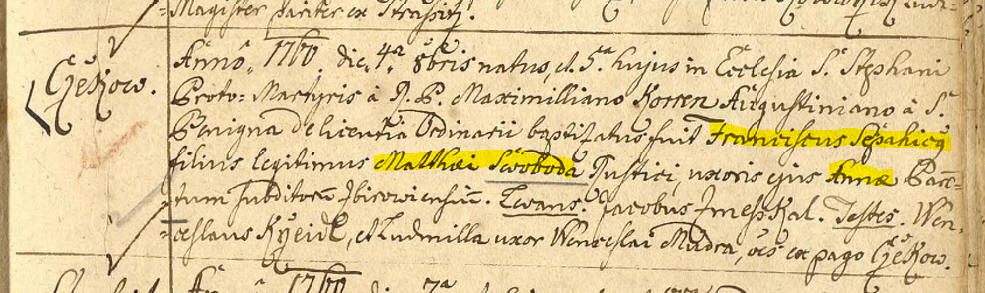 Magister pariter ex Strassitz.
Czekow.
Anno 1760 die 4ta 8bris natus, et 5ta hujus in Ecclesia S. Stephani
Proto-Martyris à R. P. Maximilliano Korren Augustiniano à S.
Benigna de licentia Ordinarii baptizatus fuit Franciscus Seraphicus
filius legitimus Matthæi Swoboda Justici, uxoris ejus Annæ Paren-
tum subditorum Zbirowiensium. Levans. Jacobus Jmesskal. Testes. Wen-
ceslaus Kyeidl, et Ludmilla uxor Wenceslai Mudra, oes ex pago Czekow.
Anno 1760 die 7a